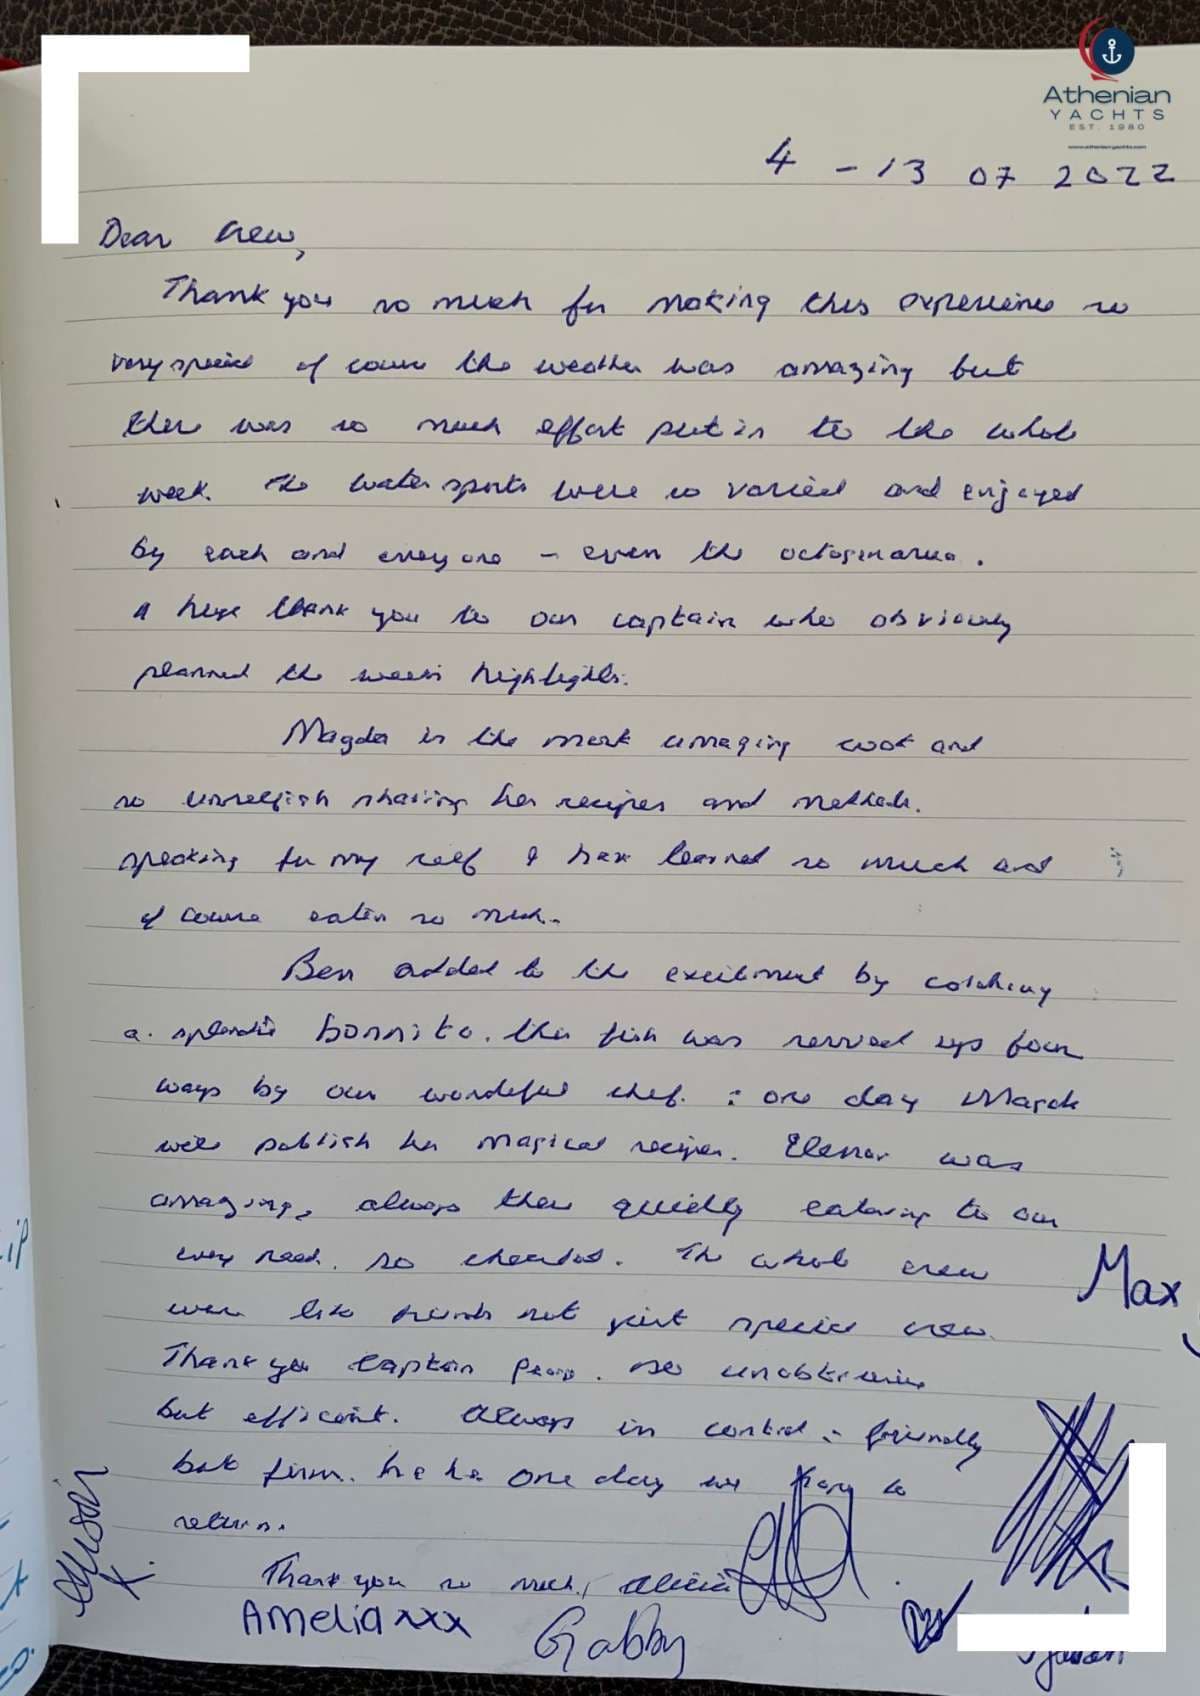 Athenian
YACHTS
EST. 1980
www.athenianyachts.com
4 - 13 07 2022
Dear Crew,
Thank you so much for making this experience so
very special of course the weather was amazing but
there was so much effort put in to the whole
week. The water sports were so varied and enjoyed
by each and everyone - even the octogenarian.
A huge thank you to our captain who obviously
planned the weeks highlights.
Magda is the most amazing cook and
so unselfish sharing her recipes and methods.
Speaking for my self I have learned so much and
of course eaten so much.
Ben added to the excitment by catching
a splendid bonnito. The fish was served up four
ways by our wonderful chef. : one day Magda
will publish her magical recipes. Elenor was
amazing, always there quietly catering to our
every need. so cheerful. The whole crew
were like friends not just special crew.
Thank you Captain. so unobtrusive
but efficient. Always in control - friendly
but firm. one day we hope to
return.
Thank you so much, Alicia
Max
Allison
X
Amelia xxx
Gabby